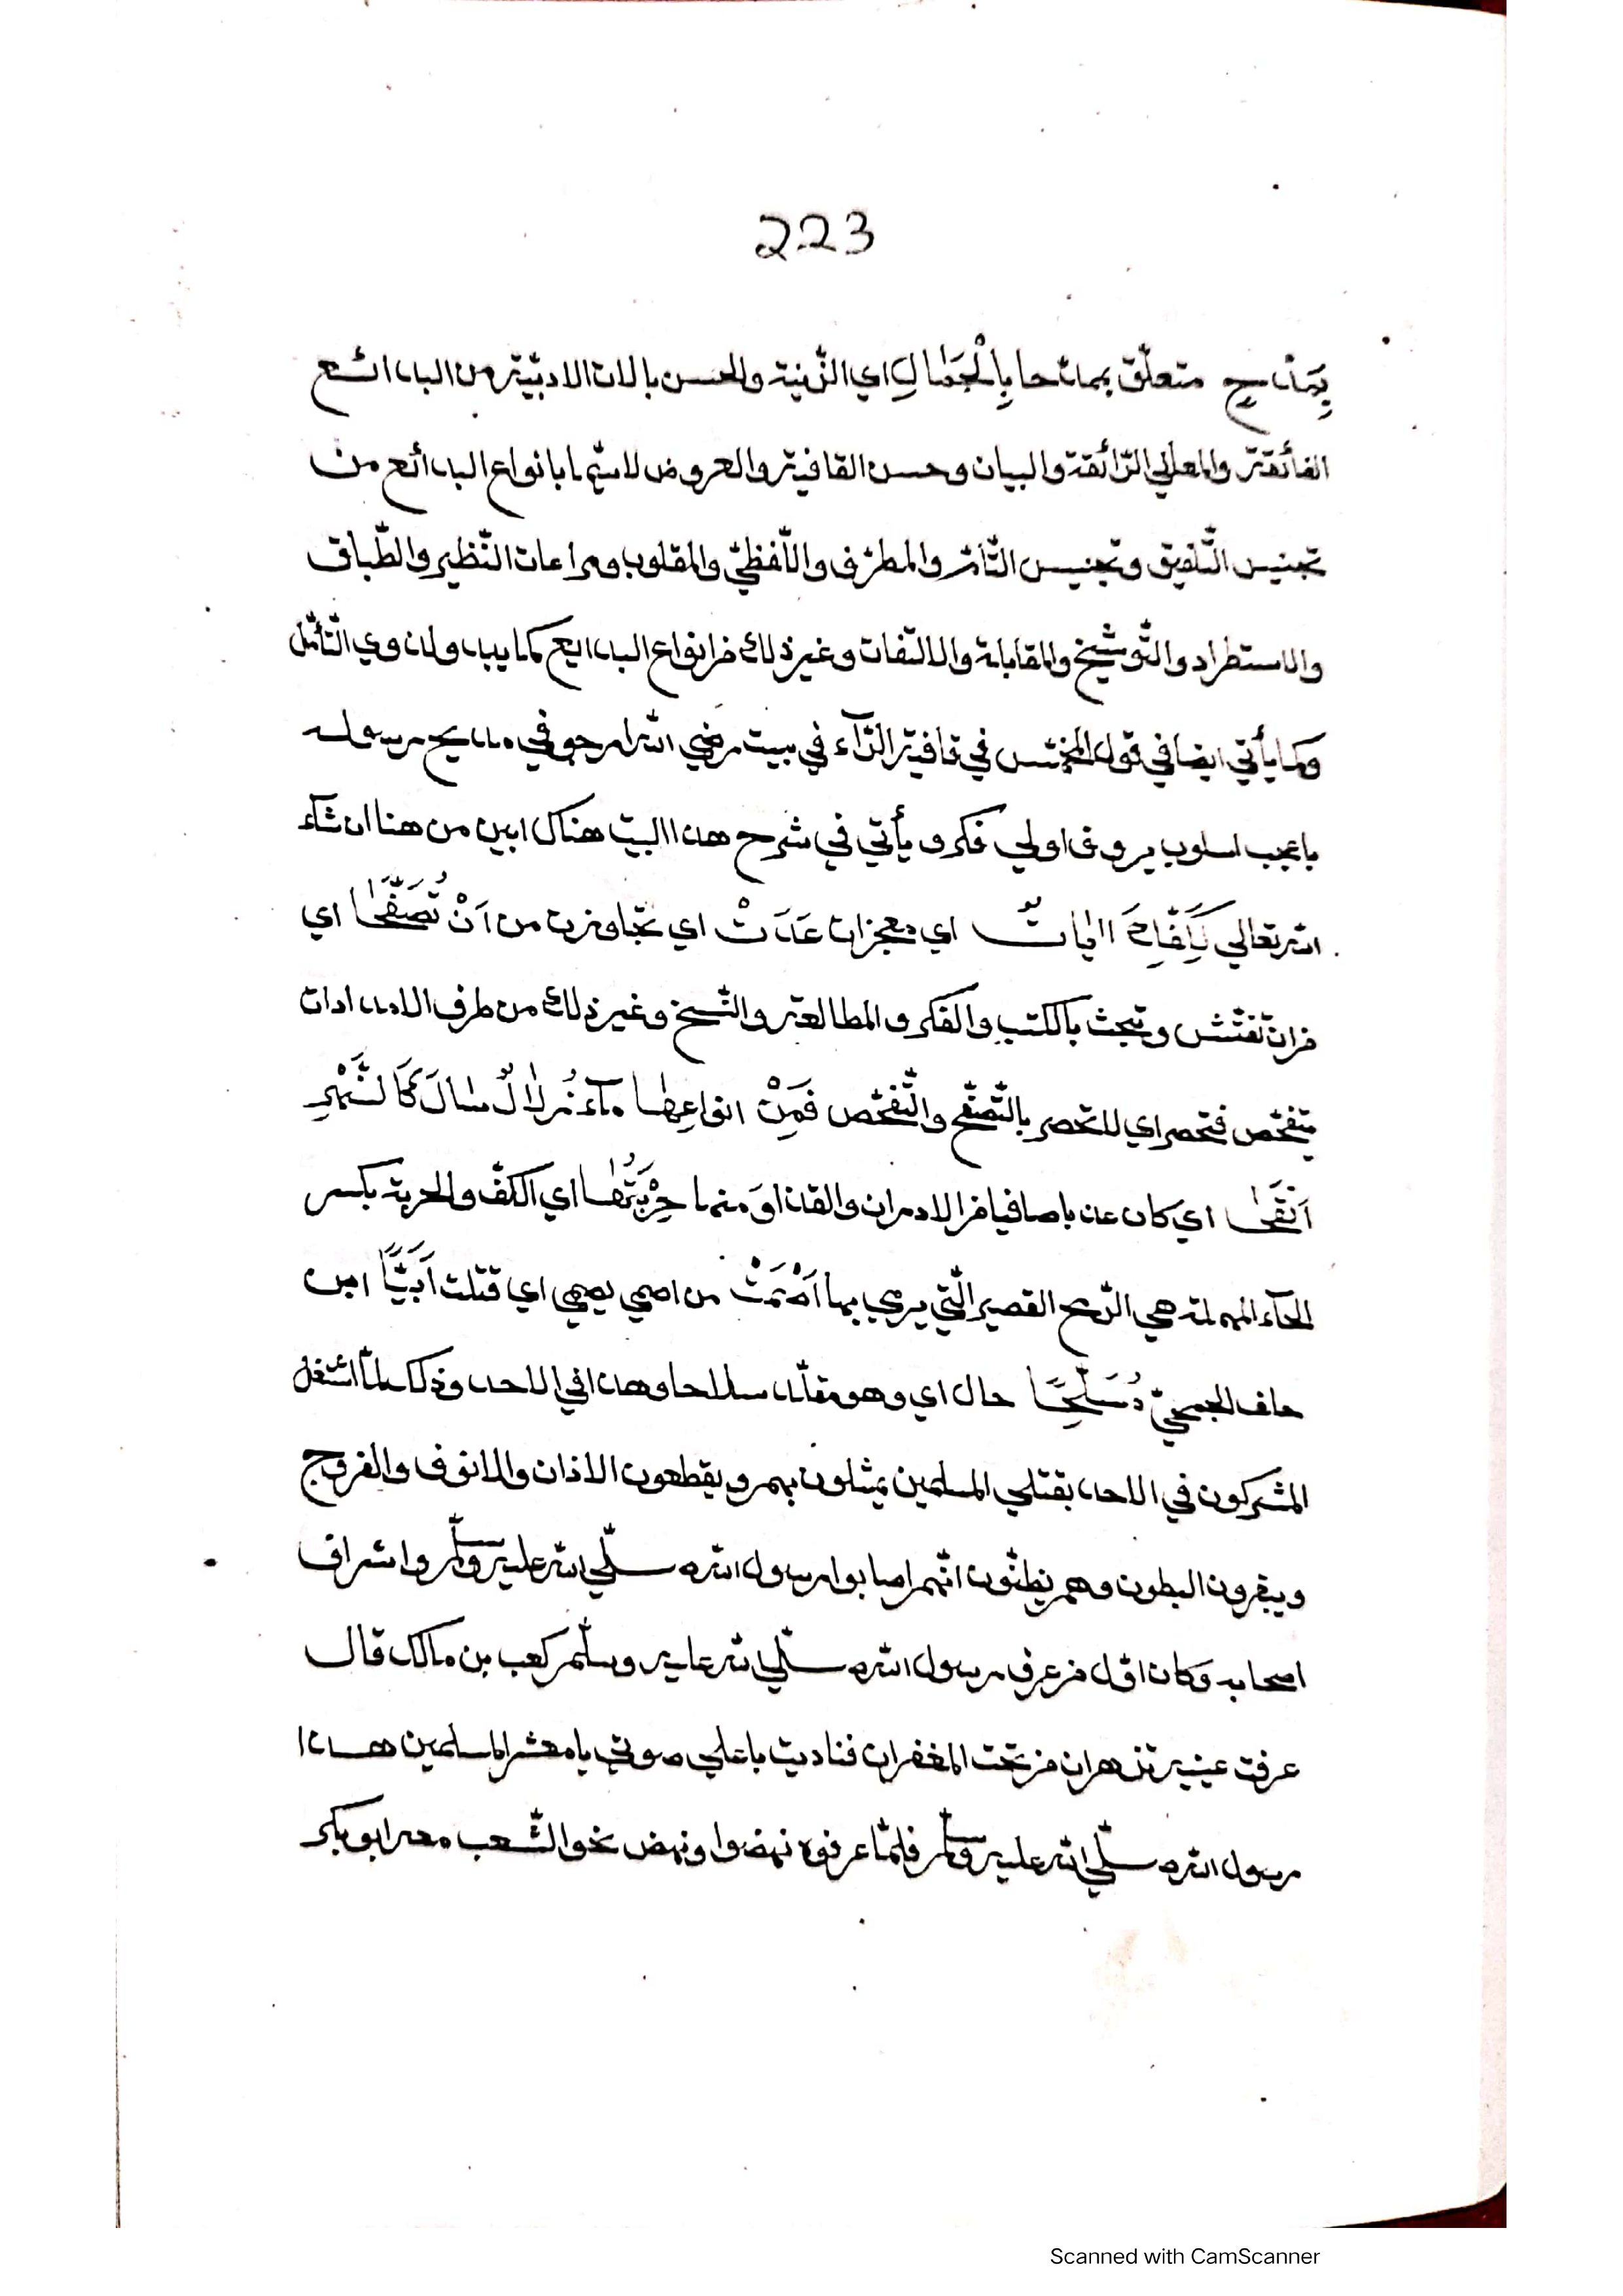 223
بِمَدْحٍ متعلّق بمدحا بِالْجَمَالِ اي الزّينة والحسن بالات الادبيّة من البدائع
الفائقة والمعاني الرّائقة والبيان وحسن القافية والعروض لاسيّما بانواع البدائع من
تجنيس التّلفيق وتجنيس التّامّ والمطرّف واللّفظيّ والمقلوب ومراعات النّظير والطّباق
والاستطراد والتّوشيخ والمقابلة والالتفات وغير ذلك من انواع البدايع كما يبدو لذوي التّأمّل
وكما يأتي ايضا في قول المخمّس في قافية الرّآء في بيت رضي الله ارجو في مديح رسوله
باعجب اسلوب يروق اولي فكر ويأتي في شرح هذا البيت هناك ابين من هنا ان شآء
الله تعالي اٰيَاتٌ اي معجزات عَدَتْ اي تجاوزت من اَنْ تُصَفَّحٰى اي
من ان تفتّش وتبحث بالكتب والفكر والمطالعة والنّسخ وغير ذلك من طرف الامدادات
يتفحّص فتحصر اي لا تحصر بالتّصفّح والتّفحّص فَمِنْ انواعِهٰا مآءٌ زُلاٰلٌ سٰالَ كَالنَّهْرِ
اَنْقَىٰ اي كان عذبا صافيا من الادران والقذا ومنها حِرْبَتُهٰا اي الكفّ والحربة بكسر
الحآء المهملة هي الرّمح القصير الّتي يرمي بها اَصْمَتْ من اصمي يصمي اي قتلت اُبَيًّا ابن
خلف الجمحيّ مُسَلَّحًا حال اي وهو مقلّد سلاحا وهذا في الاحد وذلك لمّا اشتغل
المشركون في الاحد بقتلي المسلمين يمثلون بهم ويقطعون الاذان والانوف والفروج
ويبقرون البطون وهم يظنّون انّهم اصابوا رسول الله صلّي الله عليه وسلّم واشراف
اصحابه وكان اوّل من عرف رسول الله صلّي الله عليه وسلّم كعب بن مالك قال
عرفت عينيه تزهران من تحت المغفر ان فناديت باعلي صوتي يا معشر المسلمين هذا
رسول الله صلّي الله عليه وسلّم فلمّا عرفوه نهضوا ونهض نحو الشّعب معه ابو بكر
Scanned with CamScanner